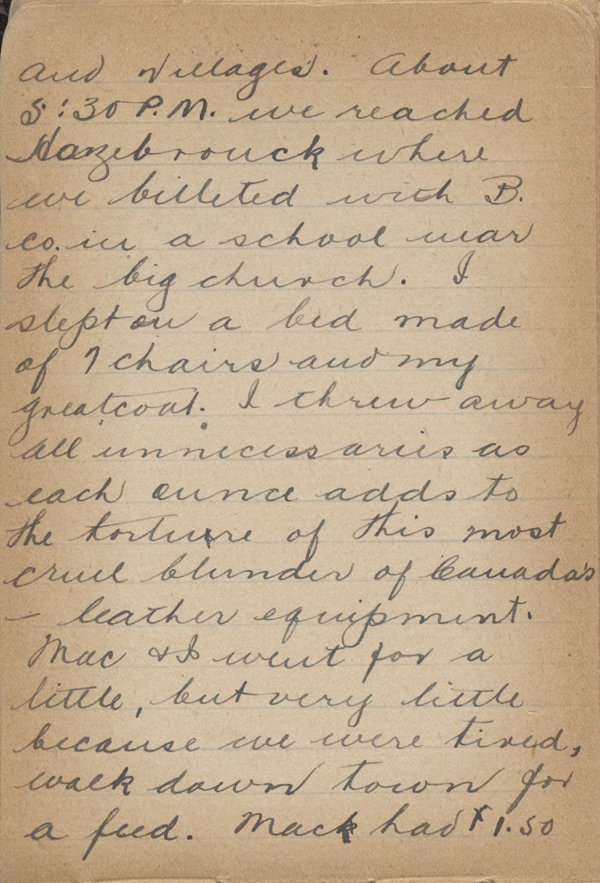 and villages. About
5:30 P.M. we reached
Hazebrouck where
we billeted with B.
co. in a school near
the big church. I
slept on a bed made
of 7 chairs and my
greatcoat. I threw away
all unnecessaries as
each ounce adds to
the torture of this most
cruel blunder of Canada's
— leather equipment.
Mac & I went for a
little, but very little
because we were tired,
walk down town for
a feed. Mack had 1.50